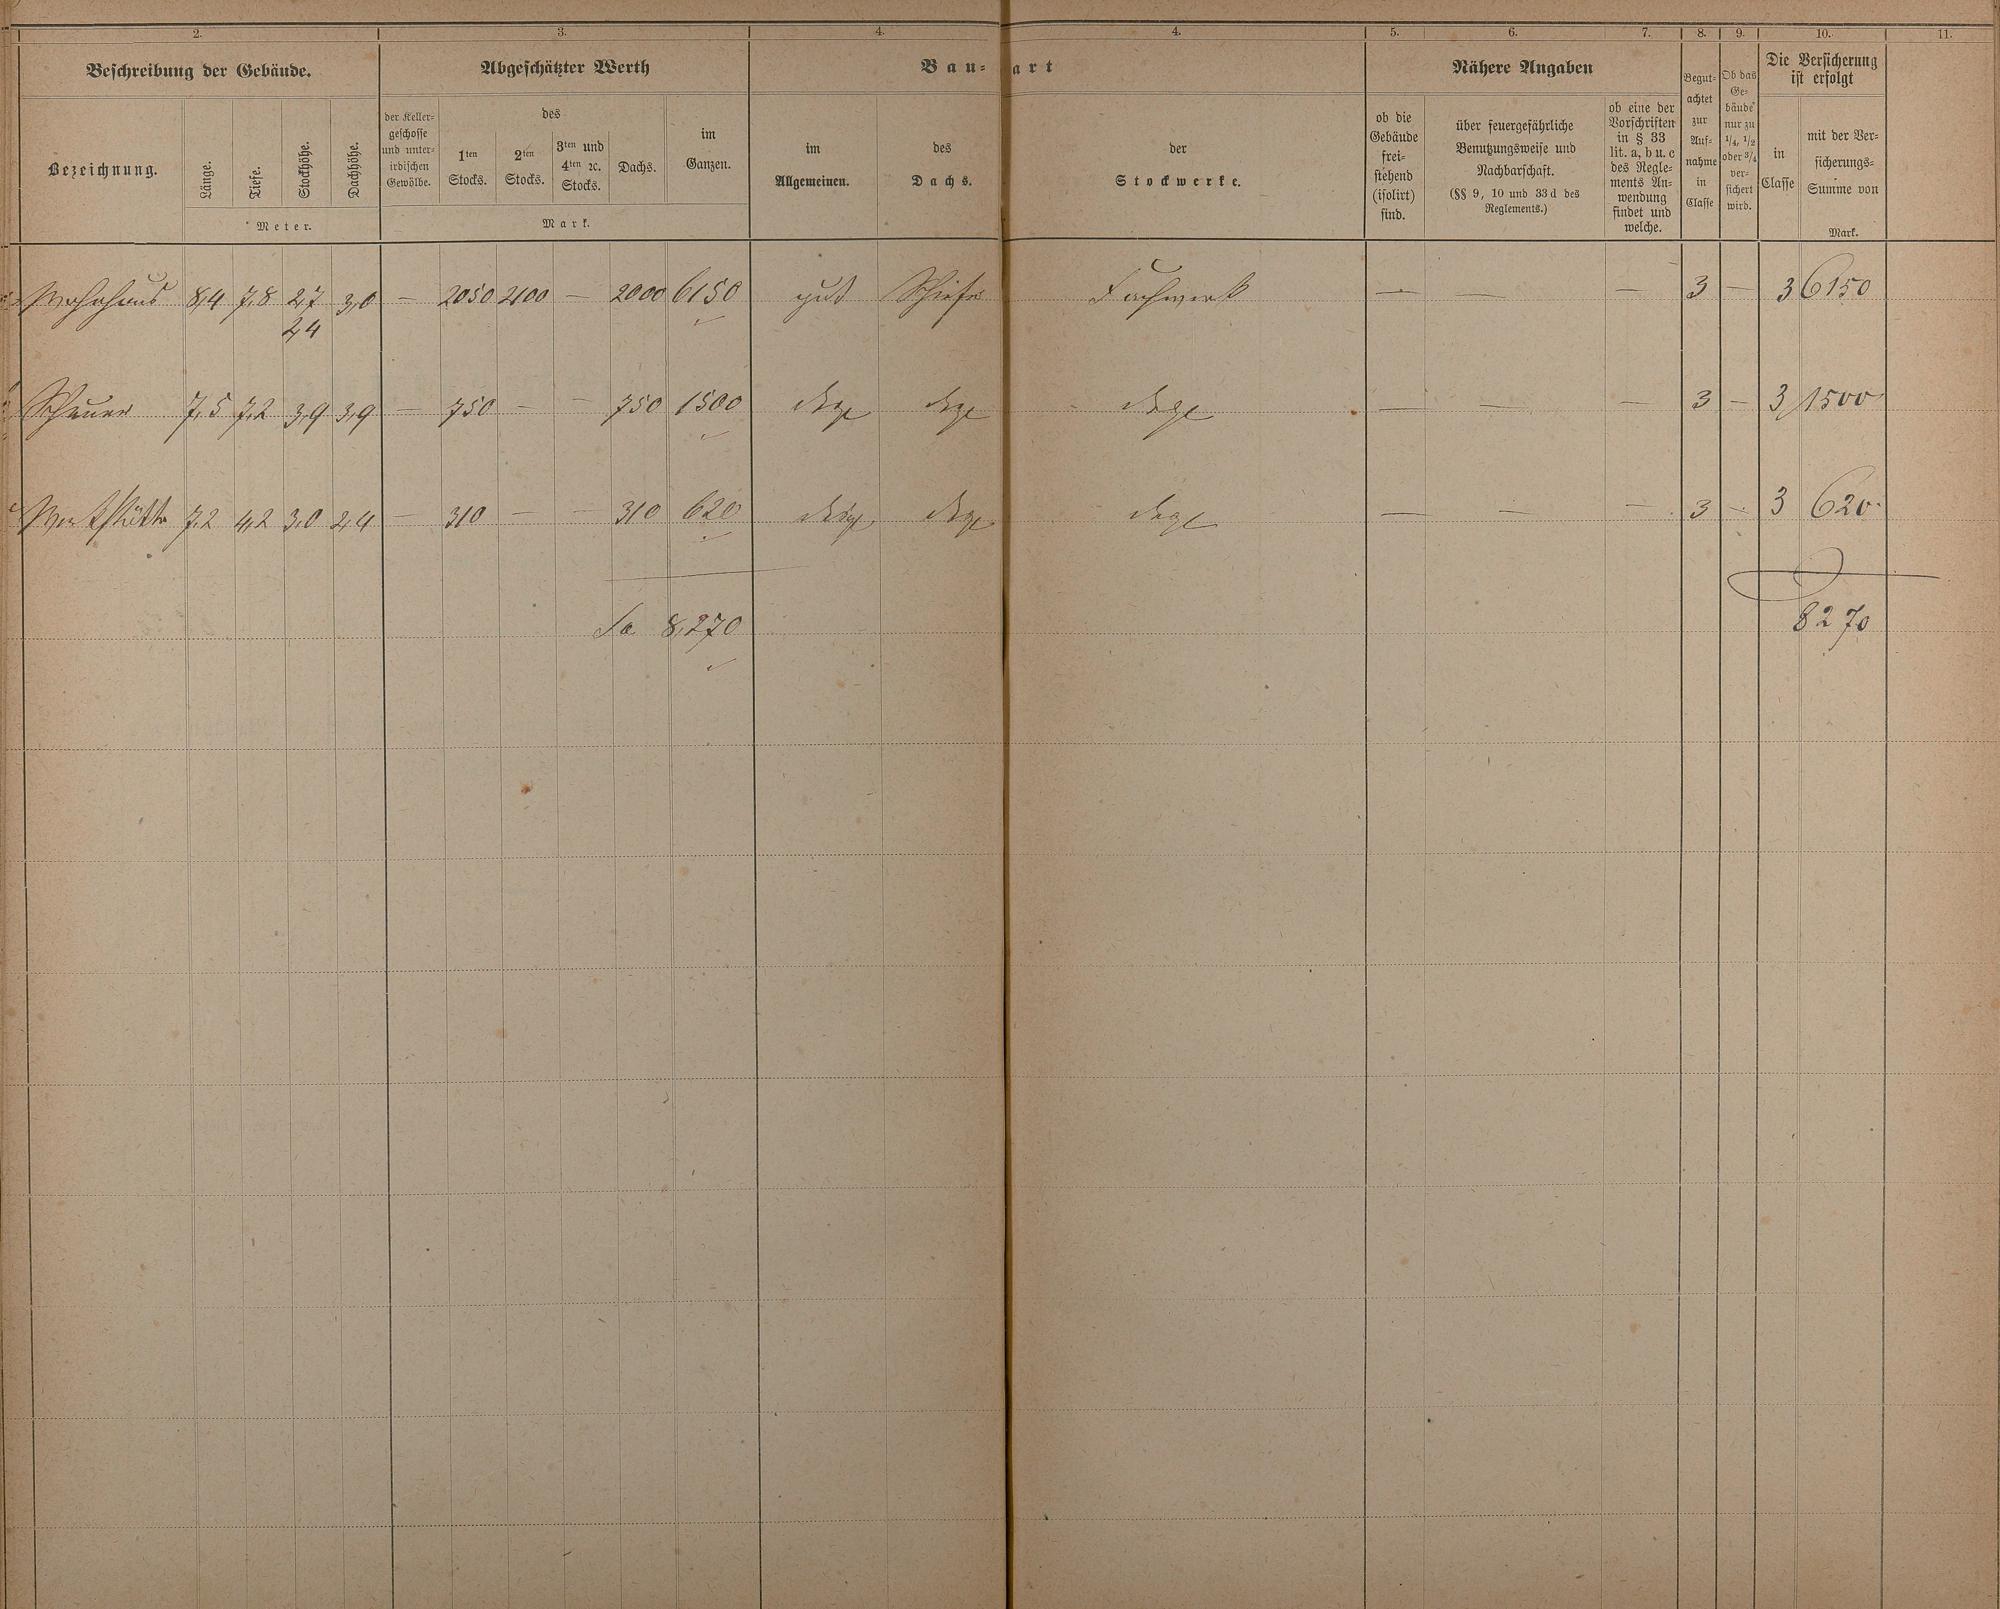 2. 3. 4. 4. 5. 6. 7. 8. 9. 10. 11.
Beschreibung der Gebäude. Abgeschätzter Werth Bau- art Nähere Angaben
Bezeichnung. Länge. Tiefe. Stockhöhe. Dachhöhe.
Meter.
der Keller-
geschosse
und unter-
irdischen
Gewölbe.
des
1ten
Stocks.
2ten
Stocks.
3ten und
4ten ꝛc.
Stocks.
Dachs.
im
Ganzen.
Mark.
im
Allgemeinen.
des
Dachs.
der
Stockwerke.
ob die
Gebäude
frei-
stehend
(isolirt)
sind.
über feuergefährliche
Benutzungsweise und
Nachbarschaft.
(§§ 9, 10 und 33d des
Reglements.)
ob eine der
Vorschriften
in § 33
lit. a, b u. c
des Regle-
ments An-
wendung
findet und
welche.
Begut-
achtet
zur
Auf-
nahme
in
Classe
Ob das
Ge-
bäude
nur zu
1/4, 1/2
oder 3/4
ver-
sichert
wird.
Die Versicherung
ist erfolgt
in
Classe
mit der Ver-
sicherungs-
Summe von
Mark.
Wohnhaus 8,4 7,8 2,7 3,0 — 2050 2100 — 2000 6150 gut Schiefer Fachwerk — — — 3 — 3 6150
2,4
Scheuer 7,5 7,2 3,9 3,9 — 750 — — 750 1500 desgl desgl desgl — — — 3 — 3 1500
Werkstätte 7,2 4,2 3,0 2,4 — 310 — — 310 620 desgl desgl desgl — — — 3 — 3 620
Sa 8,270 8270